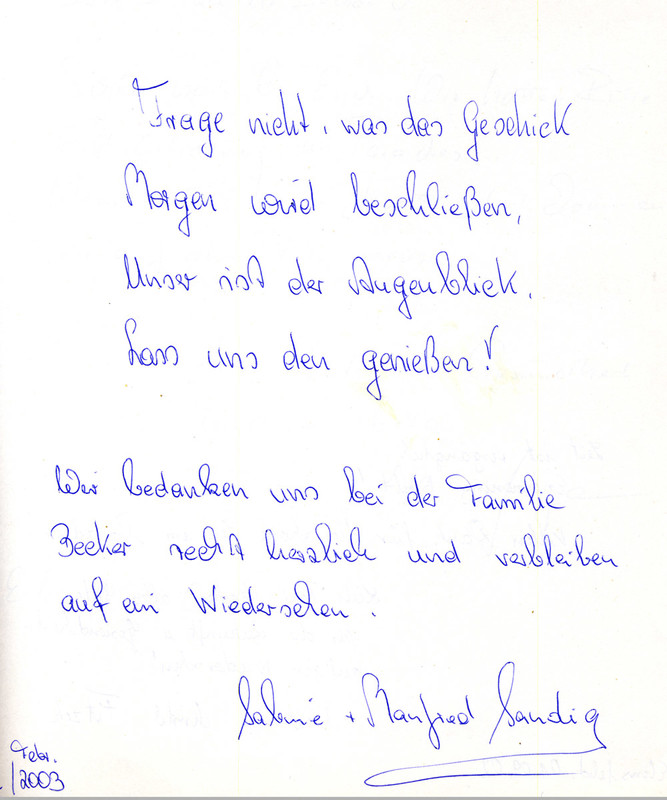 Frage nicht, was das Geschick
Morgen wird beschließen,
Unser ist der Augenblick.
Lass uns den genießen!
Wir bedanken uns bei der Familie
Becker recht herzlich und verbleiben
auf ein Wiedersehen.
Sabine + Manfred Sandig
Febr.
/2003